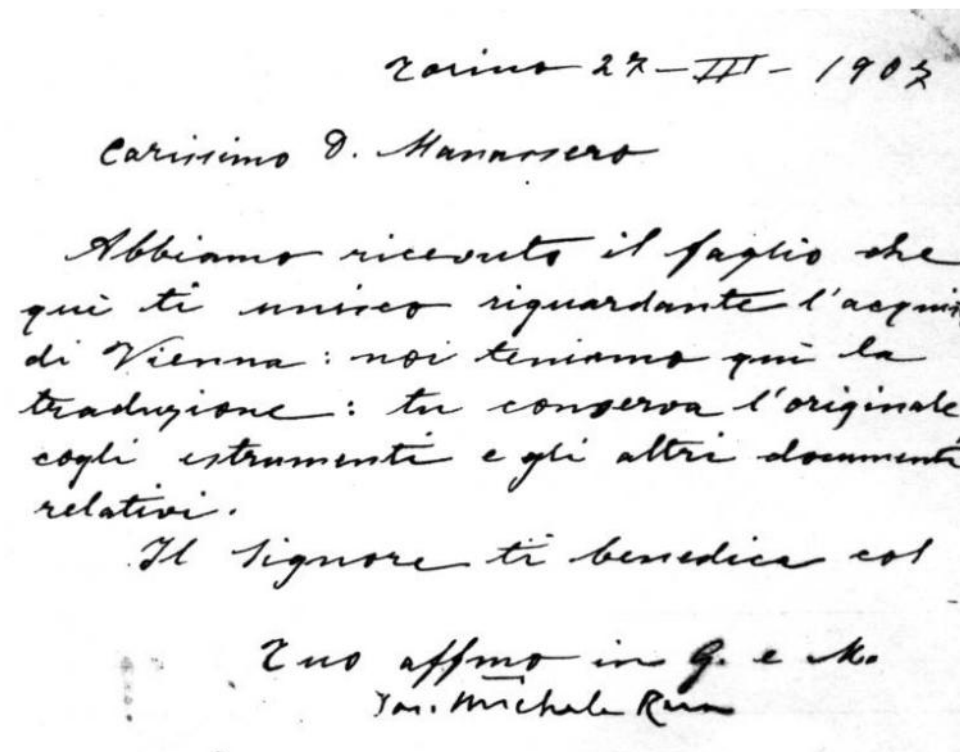 Torino 27-III-1907
Carissimo D. Manassero
Abbiamo ricevuto il foglio che
qui ti unisco riguardante l'acquis
di Vienna: noi teniamo qui la
traduzione: tu conserva l'originale
cogli istrumenti e gli altri documenti
relativi.
Il Signore ti benedica col
Tuo affmo in G. e M.
Sac. Michele Rua